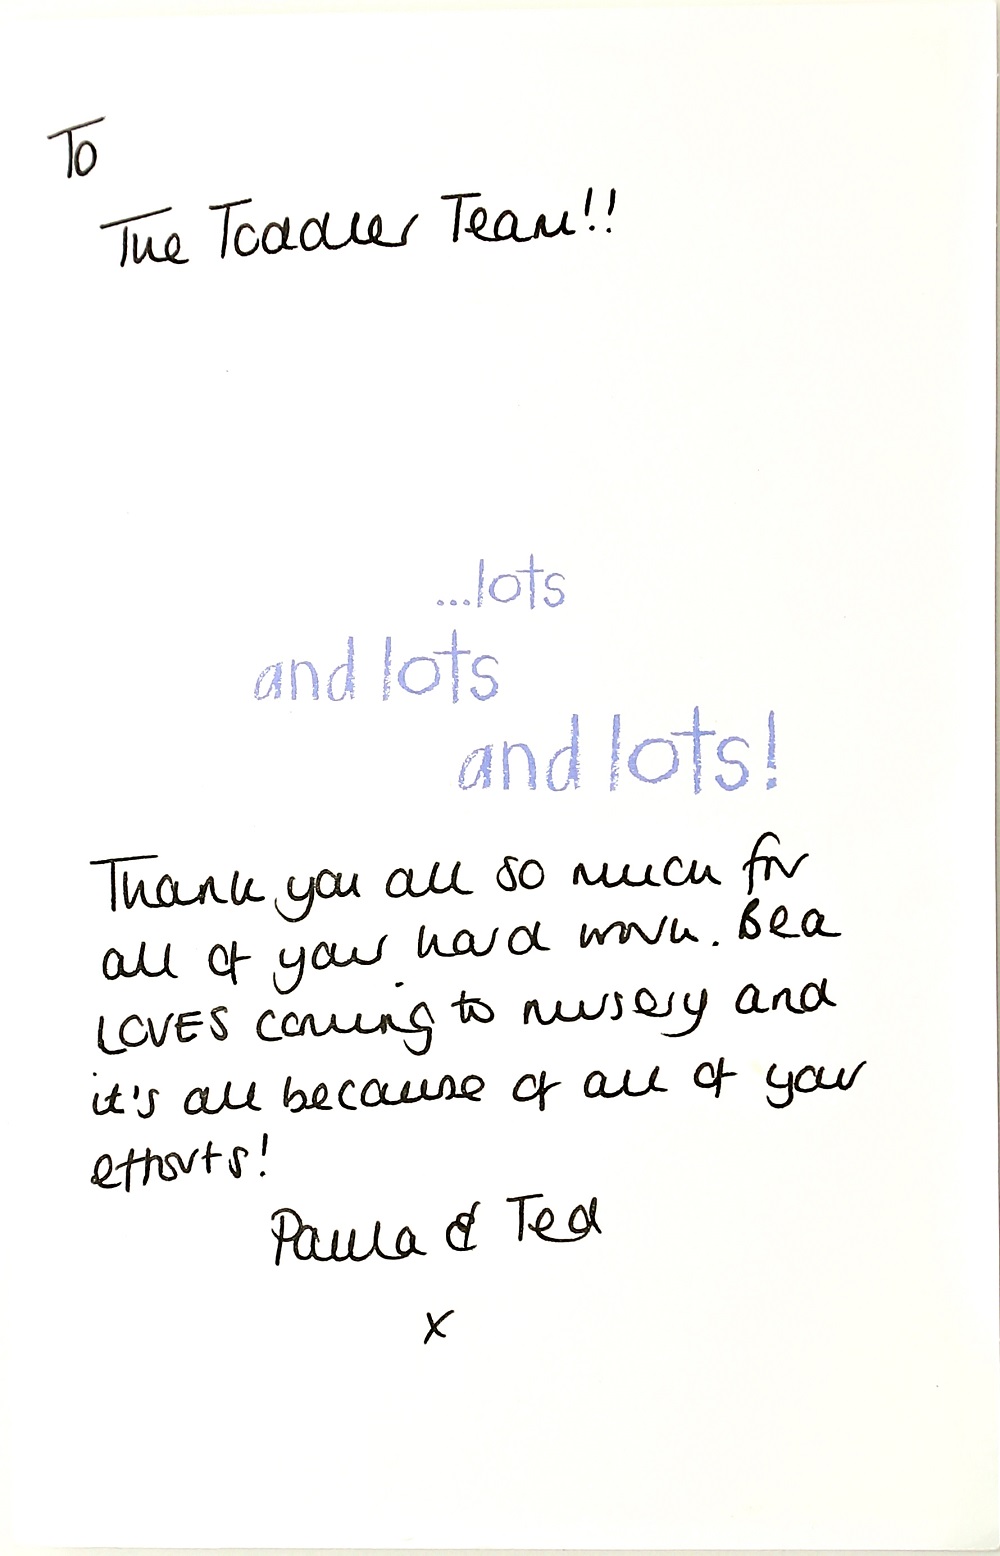 To
The Toddler Team!!
...lots
and lots
and lots!
Thank you all so much for
all of your hard work. Bea
LOVES coming to nursery and
it's all because of all of your
efforts!
Paula & Ted
x